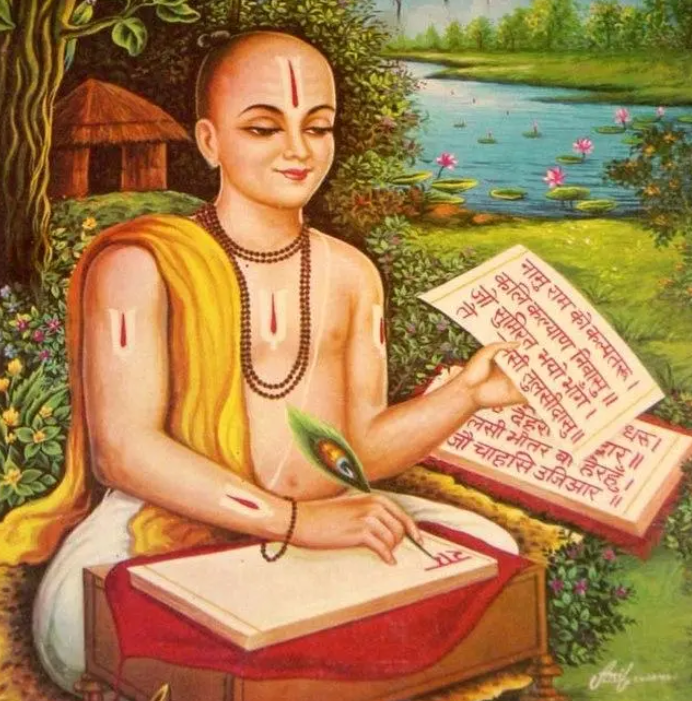 नामु राम को कल्पतरू ।
कलि कल्याण निवासु ॥
जो सुमिरत भयो भाँग ।
ते लसी तुलसीदासु॥
देहर
लसी भीतर बा हेरहुँ
जौ चाहसि उजिआर ॥
राम